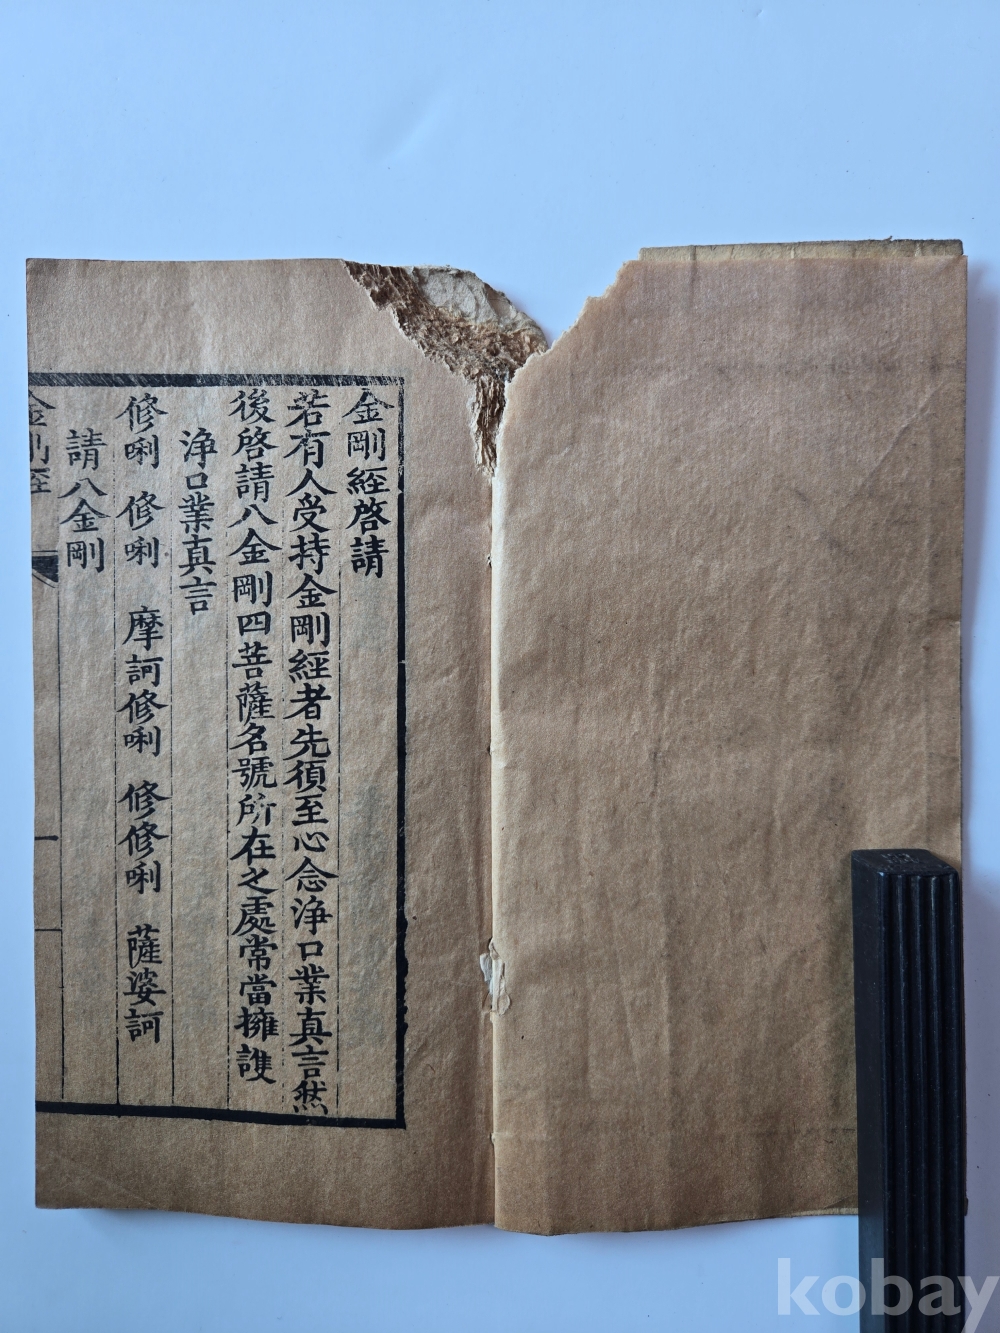 金剛經啓請
若有人受持金剛經者先須至心念淨口業真言然
後啓請八金剛四菩薩名號所在之處常當擁護
淨口業真言
修唎 修唎 摩訶修唎 修修唎 薩婆訶
請八金剛
金剛經
一
kobay